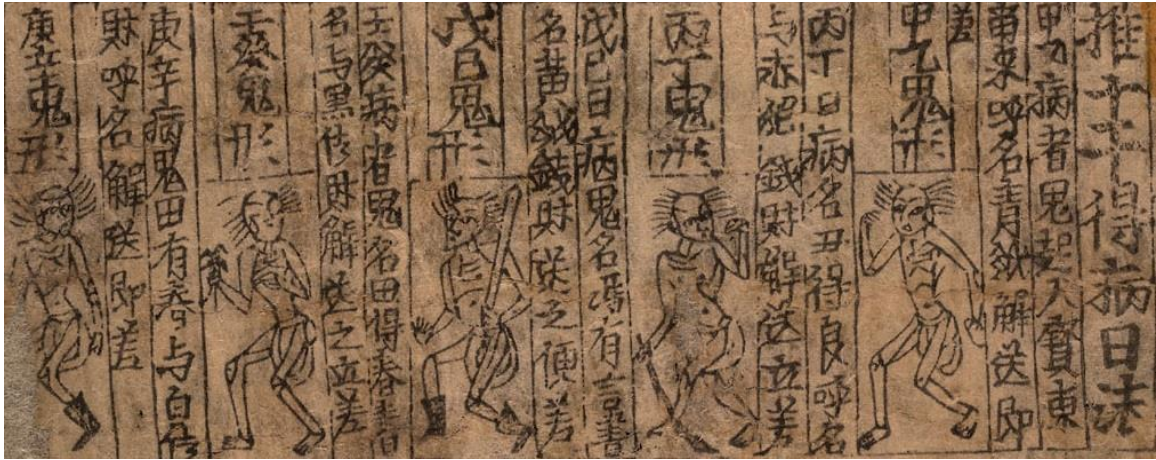 推十干得病日法
甲乙病者鬼起天賢東
南來呼名青紙解送即
差
甲乙鬼形
丙丁日病名丑得良呼名
与赤紙錢財解送立差
丙丁鬼形
戊巳日病鬼名馮有言書
名黃紙錢財送之便差
戊巳鬼形
壬癸病者鬼名田得春書
名与黑紙財解送之立差
壬癸鬼形
庚辛病鬼田有春与白紙
財呼名解送即差
庚辛鬼形